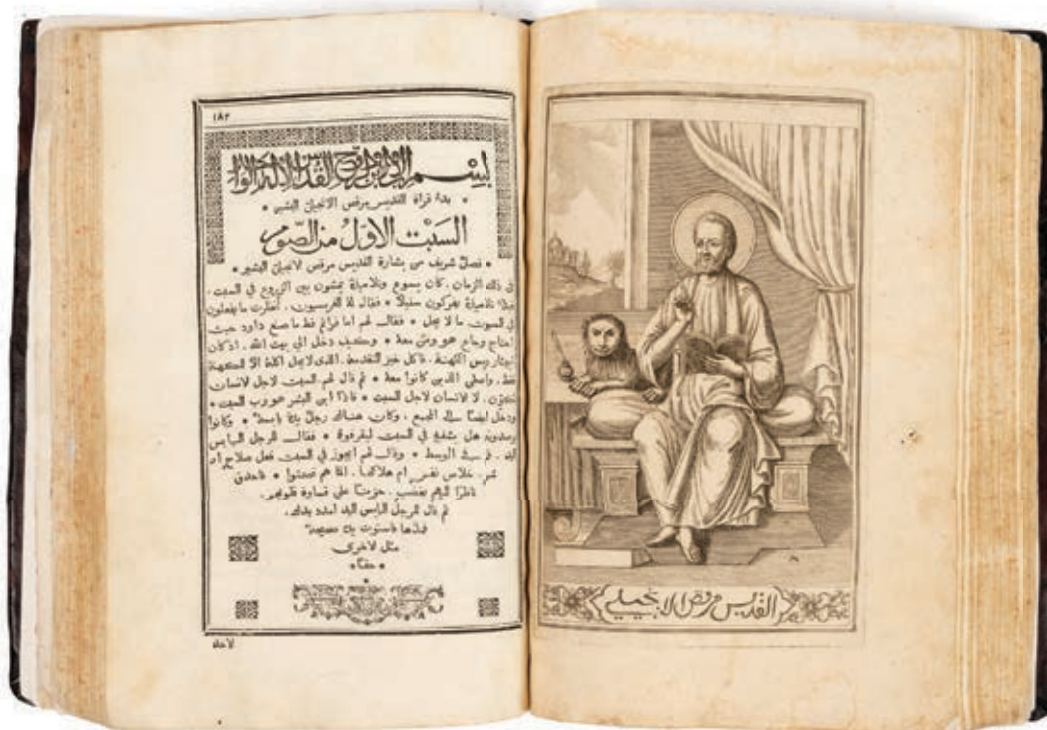 ١٨٢
بِسْمِ الاب والابن والروح القدس الاله الواحد
• بدء قراة القديس مرقص الانجيلي البشير •
السَبْت الاوَّلُ مِنَ الصَّوم
• فصلٌ شريف من بشارة القديس مرقص الانجيلي البشير •
في ذلك الزمان، كان يسوع وتلاميذهُ يمشون بين الزروع في السبت،
تلاميذهُ يفركون سنبلاً • فقال لهُ الفريسيون، انظر ما يفعلون
في السبوت، ما لا يحل • فقال لهم اما قراتم قط ما صنع داود حيث
احتاج وجاع هو ومن معهُ • وكيف دخل الي بيت الله، اذ كان
ابيثار ريس الكهنة، فاكل خبز التقدمة، الذي لا يحل اكلهُ الاَّ للكهنة
فقط، واعطي الذين كانوا معهُ • ثم قال لهم السبت لاجل الانسان
لا الانسان لاجل السبت • فاذًا ابن البشر هو رب السبت •
ودخل ايضًا الي المجمع، وكان هناك رجلٌ يدهُ يابسة • وكانوا
يرصدونهُ هل يشفيهِ في السبت ليقرفوهُ • فقال للرجل اليابس
اليد، قم في الوسط • وقال لهم ايجوز في السبت فعل صلاح ام
شر، خلاص نفس ام هلاكها، اما هم فصمتوا • فاحدق
ناظرًا اليهم بغضبٍ، حزينًا علي قساوة قلوبهم،
ثم قال للرجل اليابس اليد امدد يدك،
فمدّها فاستوت يدهُ صحيحة
مثل الاخري
• حقًا •
لاحاد
القديس مرقص الانجيلي